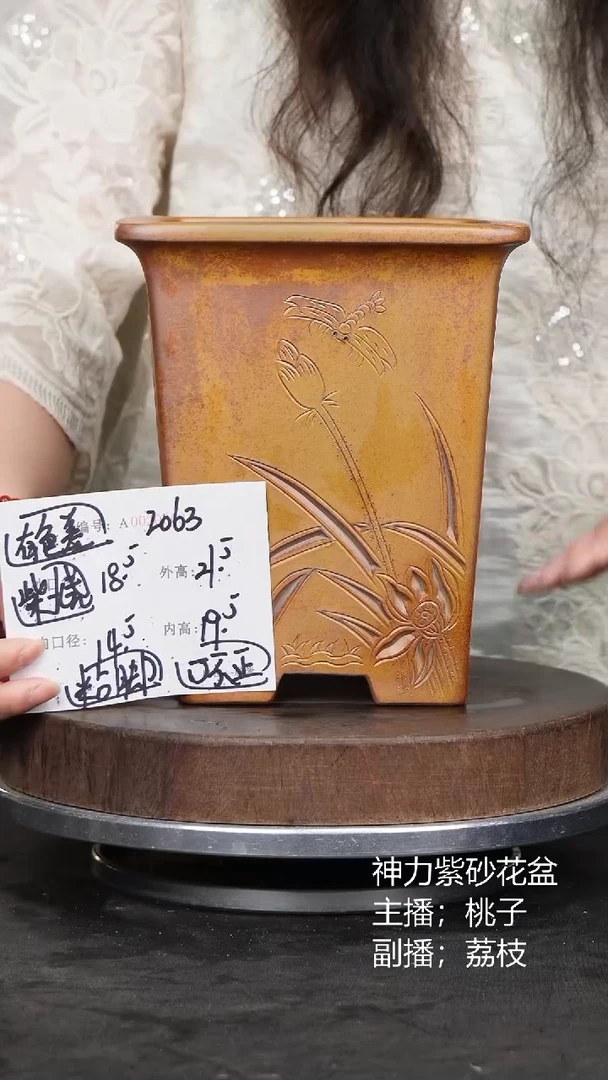 有色差 编号：A00 2063
柴烧 18.5 外高：21.5
内口径：14.5 内高：19.5
粘脚 口不正
神力紫砂花盆
主播；桃子
副播；荔枝